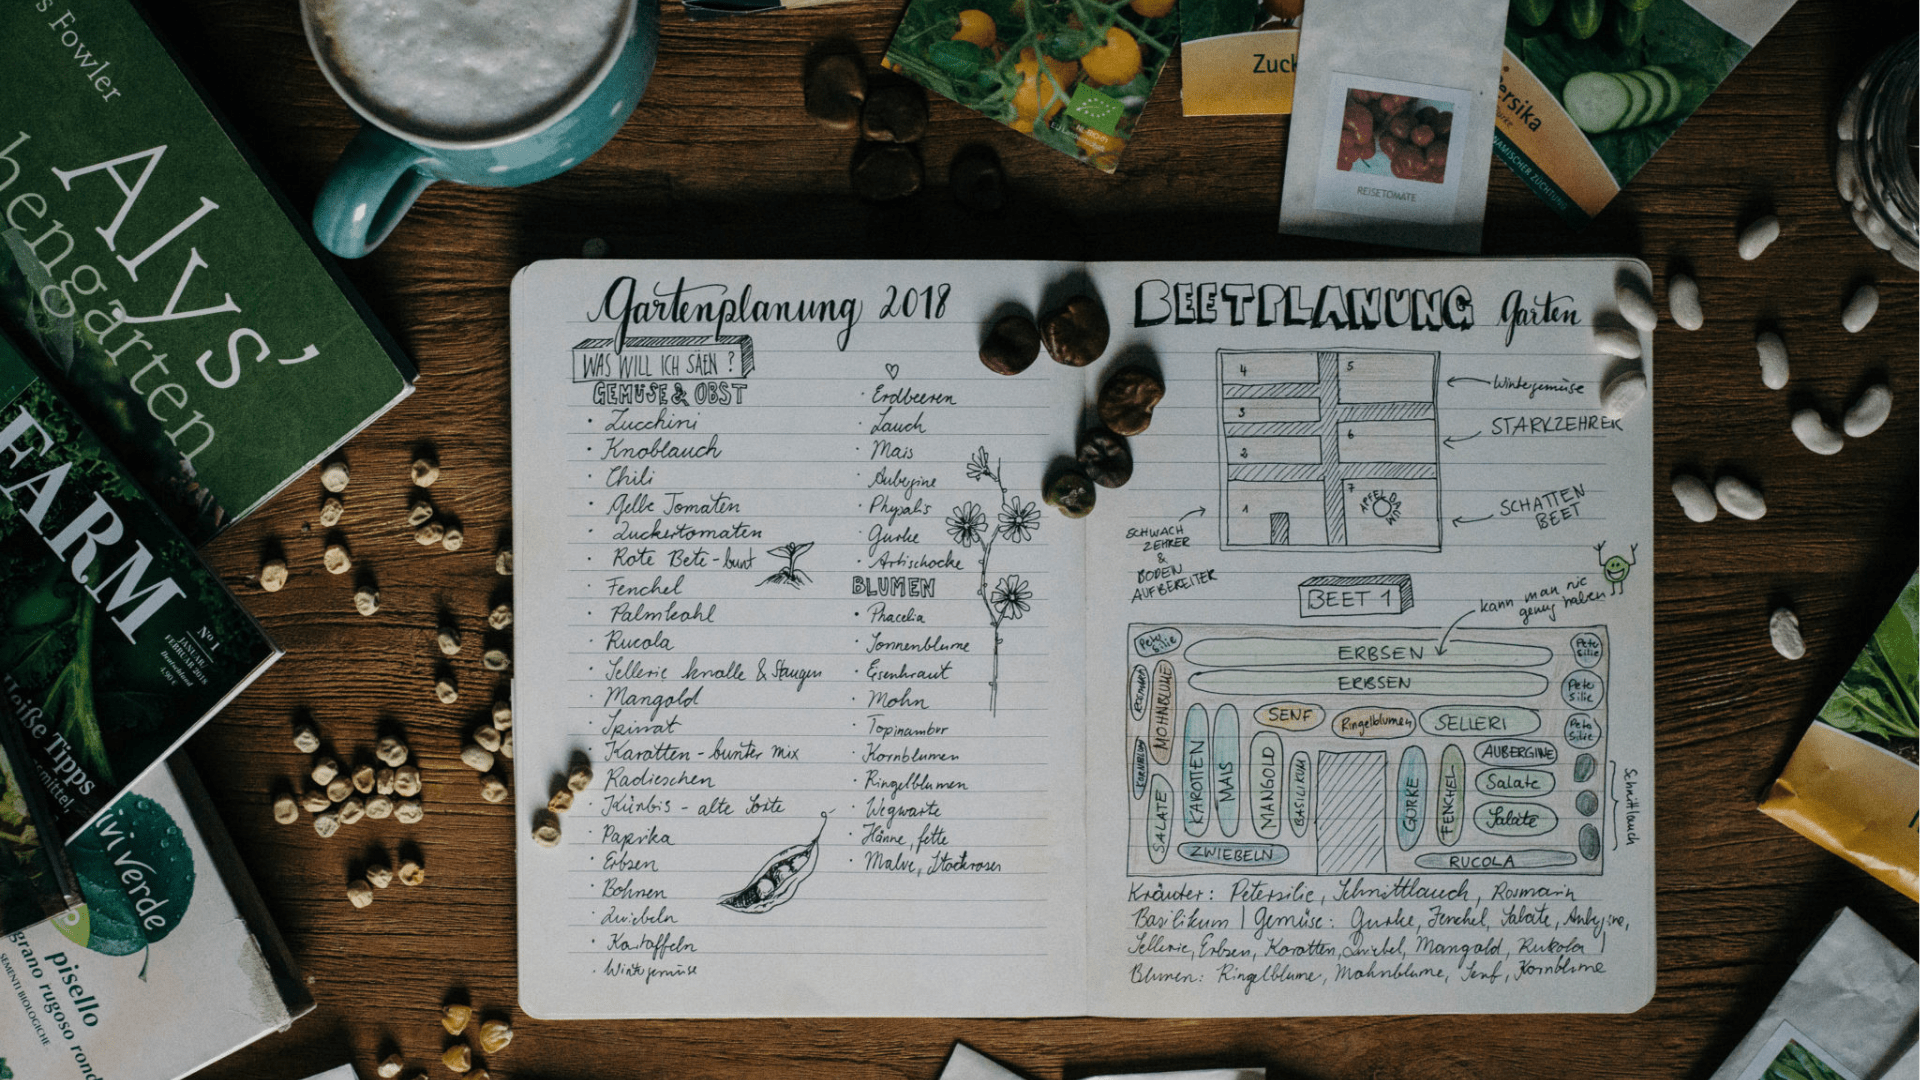 s Fowler
Alys'
hengarten
FARM
No 1
JANUAR/
FEBRUAR 2018
Deutschland
Heiße Tipps
vivi verde
pisello
grano rugoso
SEMENTI BIOLOGICHE
Zuck
REISETOMATE
ersika
Gartenplanung 2018
WAS WILL ICH SÄEN ?
GEMÜSE & OBST
· Zucchini
· Knoblauch
· Chili
· Gelbe Tomaten
· Zuckertomaten
· Rote Bete - bunt
· Fenchel
· Palmkohl
· Rucola
· Sellerie knolle & Staugen
· Mangold
· Spinat
· Karotten - bunter mix
· Radieschen
· Kürbis - alte Sorte
· Paprika
· Erbsen
· Bohnen
· Zwiebeln
· Kartoffeln
· Wintergemüse
· Erdbeeren
· Lauch
· Mais
· Aubergine
· Physalis
· Gurke
· Artischocke
BLUMEN
· Phacelia
· Sonnenblume
· Eisenkraut
· Mohn
· Topinambur
· Kornblumen
· Ringelblumen
· Wegwarte
· Hänne, fette
· Malve, Stockrosen
BEETPLANUNG Garten
4
5
3
6
2
7
1
APFELBAUM
Wintergemüse
STARKZEHRER
SCHATTEN
BEET
SCHWACH
ZEHRER
&
BODEN
AUFBEREITER
BEET 1
kann man nie
genug haben
Peter
silie
ERBSEN
Peter
silie
ERBSEN
Peter
silie
ROSMARIN
MOHNBLUME
SENF
Ringelblumen
SELLERI
Peter
silie
KORNBLUME
KAROTTEN
MAIS
MANGOLD
BASILIKUM
GURKE
FENCHEL
AUBERGINE
Salate
Salate
SALATE
Schnittlauch
ZWIEBELN
RUCOLA
Kräuter: Petersilie, Schnittlauch, Rosmarin
Basilikum | Gemüse: Gurke, Fenchel, Salate, Aubergine,
Sellerie, Erbsen, Karotten, Zwiebel, Mangold, Rukola |
Blumen: Ringelblume, Mohnblume, Senf, Kornblume